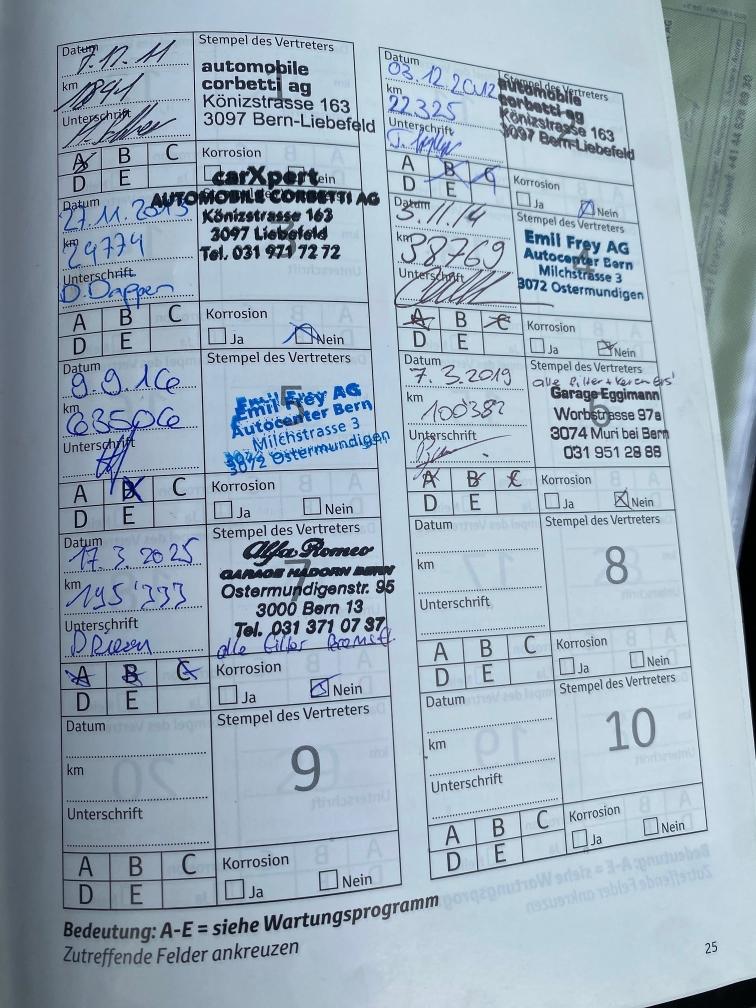 Datum 7.12.11
km 1891
Unterschrift
Stempel des Vertreters
automobile
corbetti ag
Könizstrasse 163
3097 Bern-Liebefeld
A B C
D E
Korrosion
Nein
Datum 03.12.2012
km 22325
Unterschrift
Stempel des Vertreters
automobile
corbetti ag
Könizstrasse 163
3097 Bern-Liebefeld
A B C
D E
Korrosion
Ja Nein
Datum 27.11.2013
km 29774
Unterschrift
carXpert
AUTOMOBILE CORBETTI AG
Könizstrasse 163
3097 Liebefeld
Tel. 031 971 72 72
3
A B C
D E
Korrosion
Ja Nein
Datum 5.11.14
km 38769
Unterschrift
Stempel des Vertreters
Emil Frey AG
Autocenter Bern
Milchstrasse 3
3072 Ostermundigen
4
A B C
D E
Korrosion
Ja Nein
Datum 9.9.16
km 63506
Unterschrift
Stempel des Vertreters
5
Emil Frey AG
Autocenter Bern
Milchstrasse 3
3072 Ostermundigen
A B C
D E
Korrosion
Ja Nein
Datum 7.3.2019
km 100382
Unterschrift
Stempel des Vertreters
alle Filter + Kerzen
Garage Eggimann
Worbstrasse 97a
3074 Muri bei Bern
031 951 28 88
6
A B C
D E
Korrosion
Ja Nein
Datum 17.3.2025
km 195'333
Unterschrift
Stempel des Vertreters
7
Alfa Romeo
GARAGE HADORN BERN
Ostermundigenstr. 95
3000 Bern 13
Tel. 031 371 07 37
alle Filter
A B C
D E
Korrosion
Ja Nein
Datum
km
Unterschrift
Stempel des Vertreters
8
A B C
D E
Korrosion
Ja Nein
Datum
km
Unterschrift
Stempel des Vertreters
9
A B C
D E
Korrosion
Ja Nein
Datum
km
Unterschrift
Stempel des Vertreters
10
A B C
D E
Korrosion
Ja Nein
Bedeutung: A-E = siehe Wartungsprogramm
Zutreffende Felder ankreuzen
25